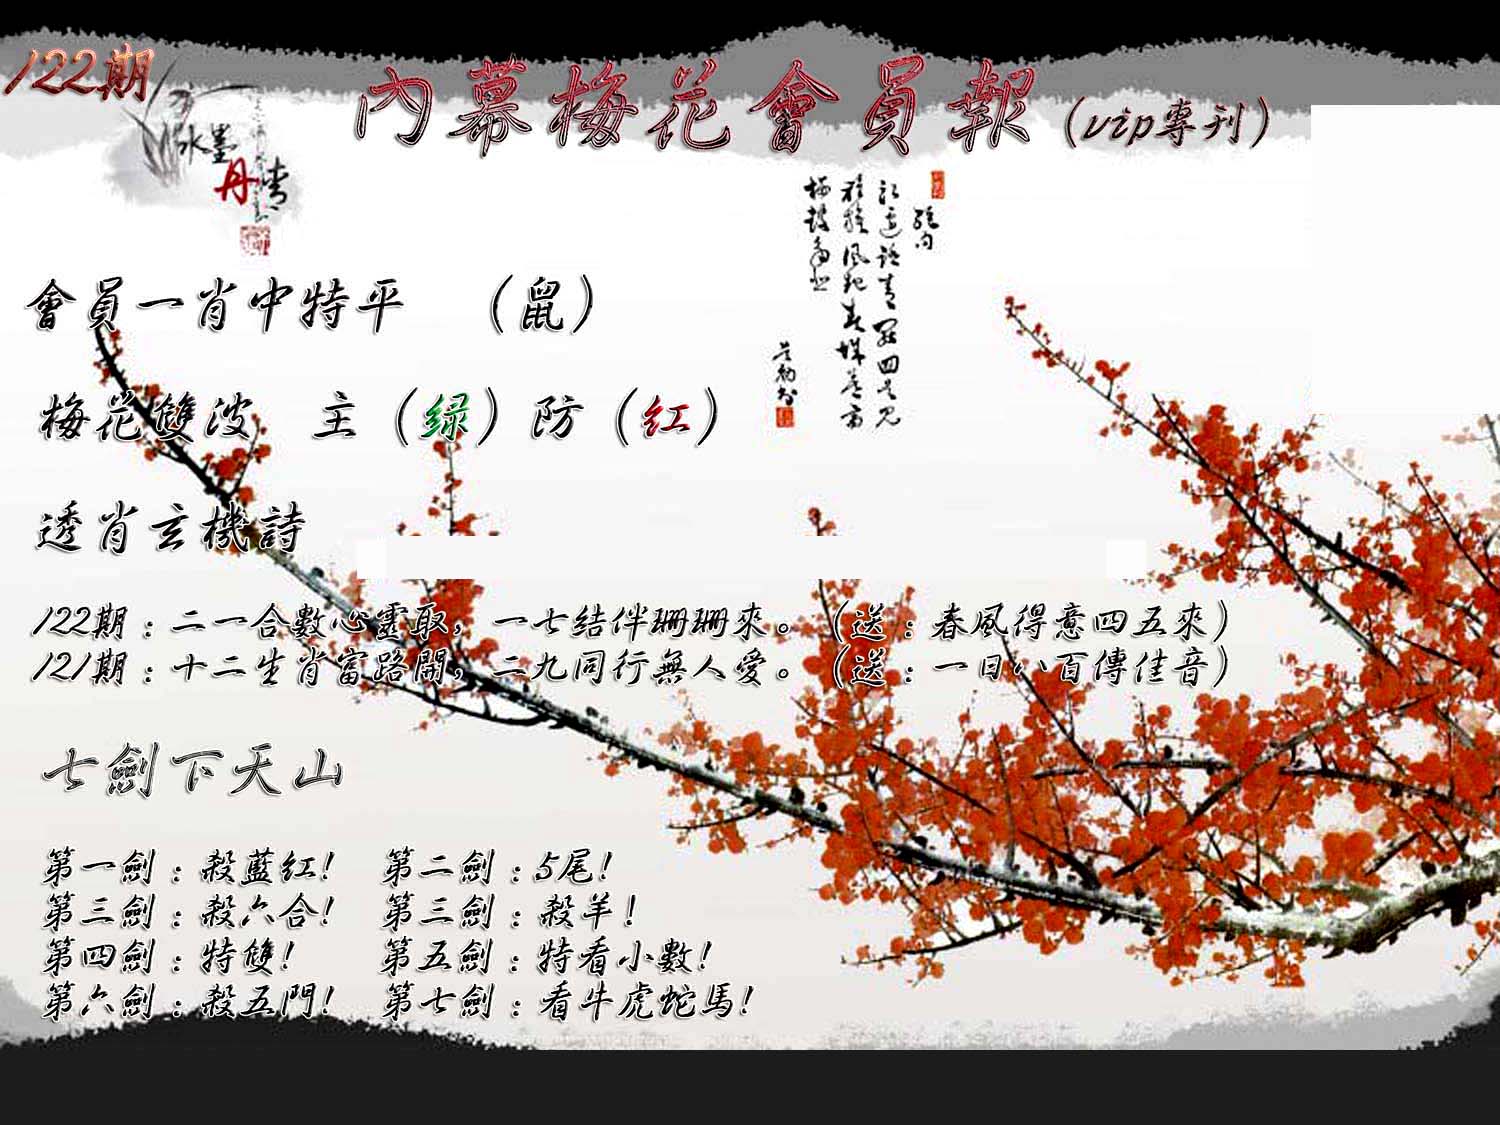 122期
內幕梅花會員報（vip專刊）
水墨
丹情
絕句
會員一肖中特平 （鼠）
梅花雙波 主（绿）防（红）
透肖玄機詩
122期：二一合數心靈取，一七結伴珊珊來。（送：春風得意四五來）
121期：十二生肖富路開，二九同行無人愛。（送：一日八百傳佳音）
七劍下天山
第一劍：殺藍紅！ 第二劍：5尾！
第三劍：殺六合！ 第三劍：殺羊！
第四劍：特雙！ 第五劍：特看小數！
第六劍：殺五門！ 第七劍：看牛虎蛇馬！